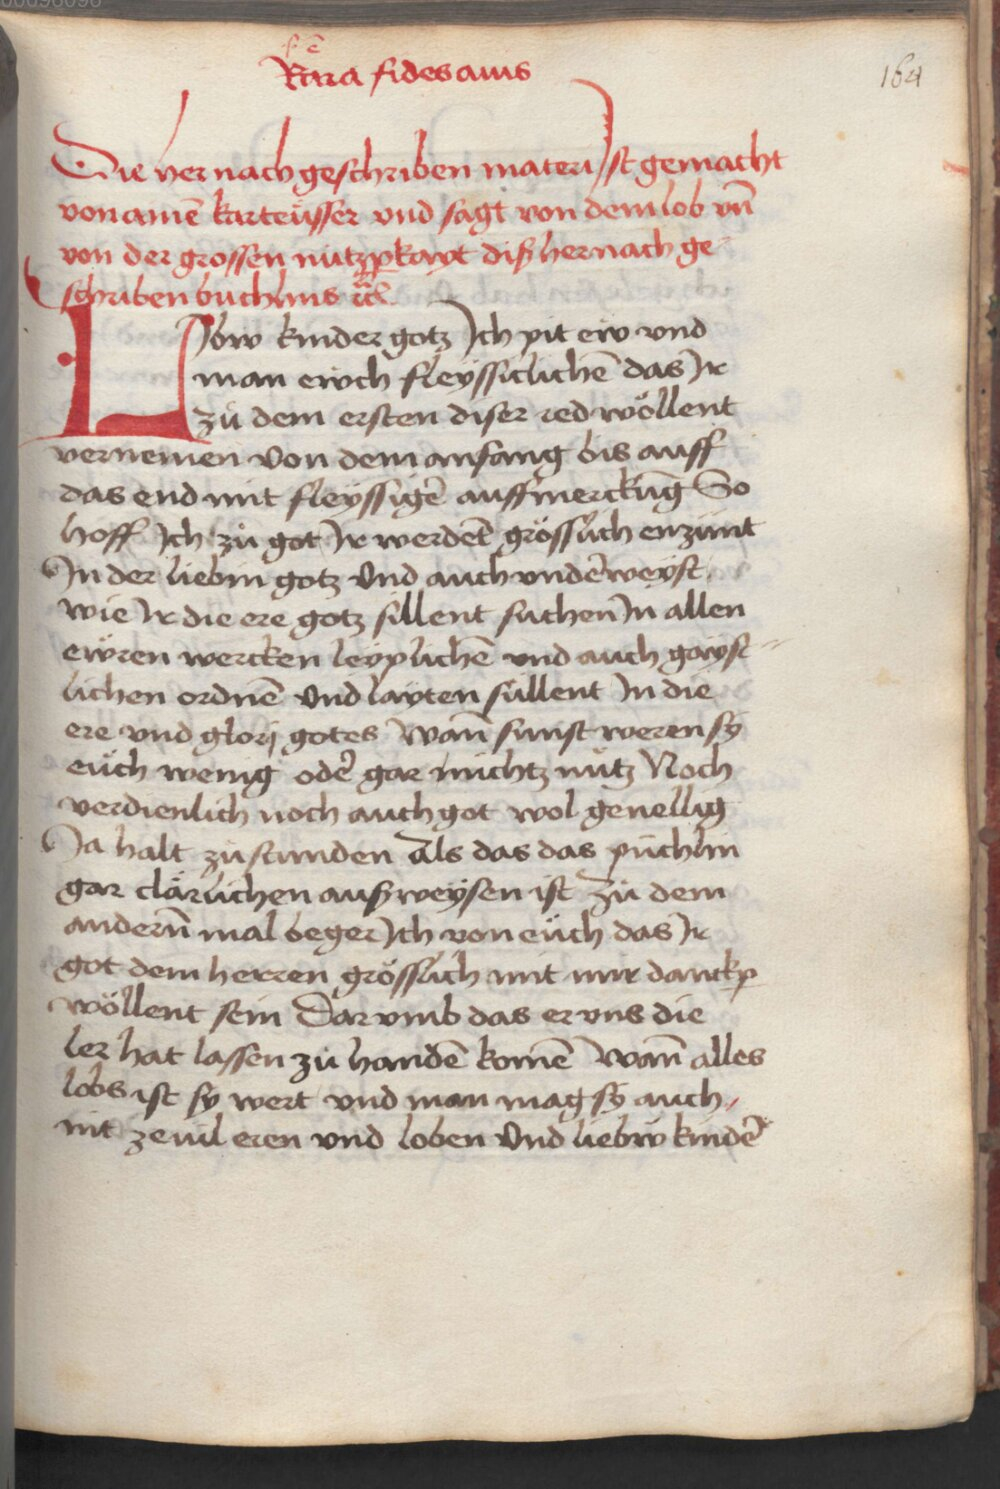 Rara fides auis
164
Die hernach geschriben materi Ist gemacht
von ainē karteüsser vnd sagt von dem lob vn̄
von der grossen nutzperkayt diß hernach ge
schriben buchlins
LIebw kinder gotz Ich pit ew vnd
man ewch fleÿssiclichē das Ir
zů dem ersten diser red wöllent
vernemen von dem anfang bis auff
das end mit fleÿssigē auffmerckūg So
hoff Ich zů got Ir werdēt grösslich enzünt
In der liebin gotz Vnd auch vnderweÿst
wie Ir die ere gotz süllent suchen In allen
ewren wercken leÿplichē vnd auch gaÿst
lichen ordnē Vnd layten süllent In die
ere vnd glorj gotes Wan̄ sunst weren sÿ
eüch wenig oder gar nüchtz nütz Noch
verdienlich noch auch got wol geuellig
Ja halt zů stunden Als das das püchlin
gar clärlichen außweÿsen ist Zů dem
andern̄ mal beger Ich von eüch das Ir
got dem herren grösslich mit mir danckp̄
wöllent sein Dar vmb das er vns die
ler hat lassen zů handē komē Wan̄ alles
lobs ist sy wert vnd man mag sÿ auch
nit ze vil eren vnd loben Vnd liebw kinder